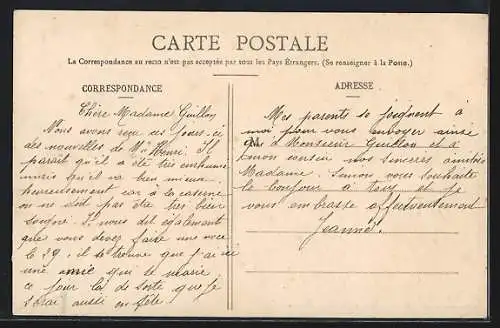 CARTE POSTALE
La Correspondance au recto n'est pas acceptée par tous les Pays Étrangers. (Se renseigner à la Poste.)
CORRESPONDANCE
Chère Madame Guillon
Nous avons reçu ces jours-ci
des nouvelles de Mr Henri. Il
parait qu'il a été très enrhumé
mais qu'il va bien mieux
heureusement car à la caserne
on ne doit pas être très bien
soigné. Il nous dit également
que vous devez faire une noce
le 29, il se trouve que j'ai ici
une amie qui se marie
ce jour là de sorte que je
serai aussi en fête.
ADRESSE
Mes parents se joignent à
moi pour vous envoyer ainsi
qu'à Monsieur Guillon et à
mon cousin nos sincères amitiés
Madame. Simon vous souhaite
le bonjour à tous et je
vous embrasse affectueusement
Jeanne.